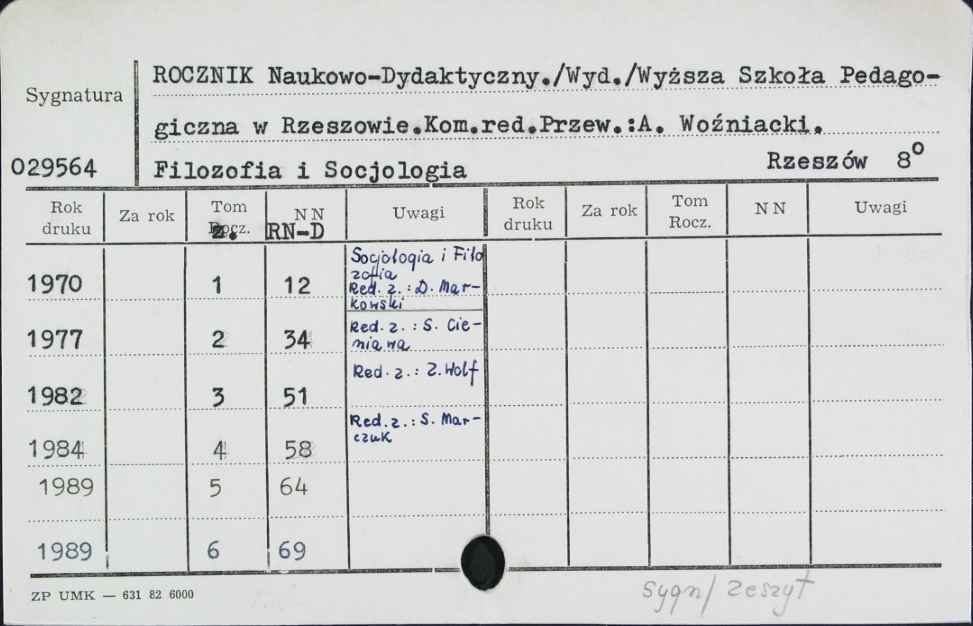 ROCZNIK Naukowo-Dydaktyczny./Wyd./Wyższa Szkoła Pedago-
Sygnatura
giczna w Rzeszowie.Kom.red.Przew.:A. Woźniacki.
029564 Filozofia i Socjologia Rzeszów 8º
Rok druku Za rok Tom Rocz. NN Uwagi Rok druku Za rok Tom Rocz. NN Uwagi
z. RN-D
1970 1 12 Socjologia i Filo
zofia
Red. z. : D. Mar-
kowski
1977 2 34 Red. z. : S. Cie-
niawa
1982 3 51 Red. z. : Z. Wolf
1984 4 58 Red. z. : S. Mar-
czuk
1989 5 64
1989 6 69
ZP UMK — 631 82 6000
sygn/ zeszyt